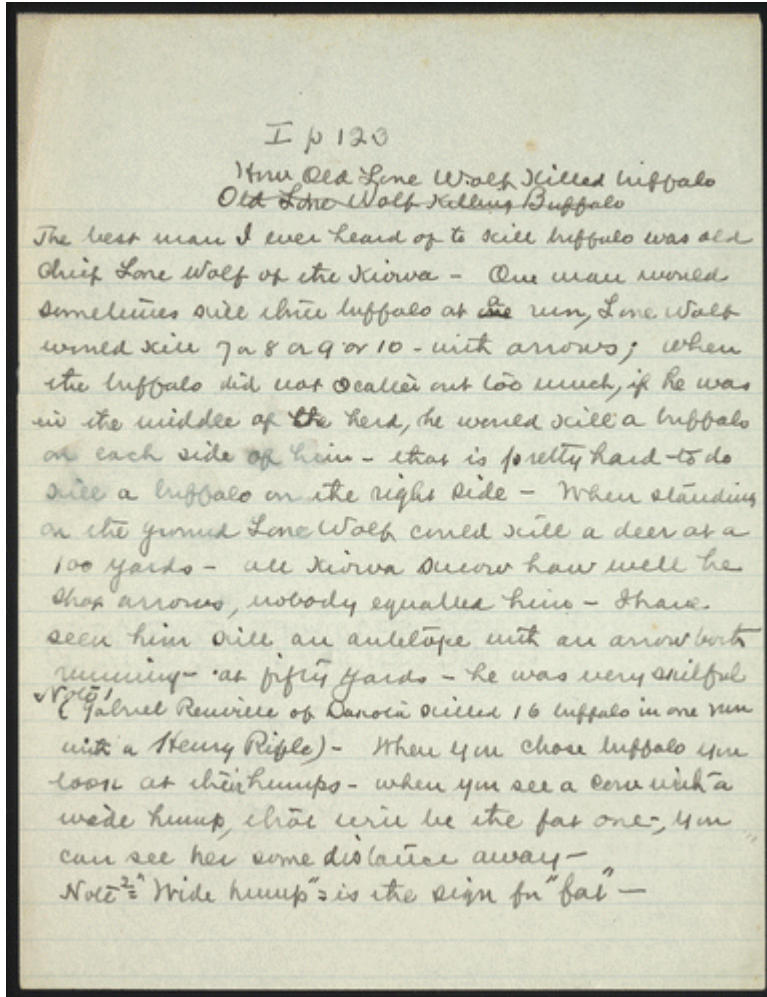 I p 123
How Old Lone Wolf Killed buffalo
Old Lone Wolf Killing Buffalo
The best man I ever heard of to kill buffalo was old
Chief Lone Wolf of the Kiowa - One man would
sometimes kill three buffalo at one run, Lone Wolf
would kill 7 or 8 or 9 or 10 - with arrows; when
the buffalo did not scatter out too much, if he was
in the middle of the herd, he would kill a buffalo
on each side of him - that is pretty hard to do
kill a buffalo on the right side - When standing
on the ground Lone Wolf could kill a deer at a
100 yards - all Kiowa know how well he
shot arrows, nobody equalled him - I have
seen him kill an antelope with an arrow both
running - at fifty yards - he was very skilful
Note 1
(Gabriel Renville of Dakota killed 16 buffalo in one run
with a Henry Rifle) - When you chose buffalo you
look at their humps - when you see a cow with a
wide hump, that will be the fat one -, you
can see her some distance away -
Note 2 = "Wide hump" = is the sign for "fat" -